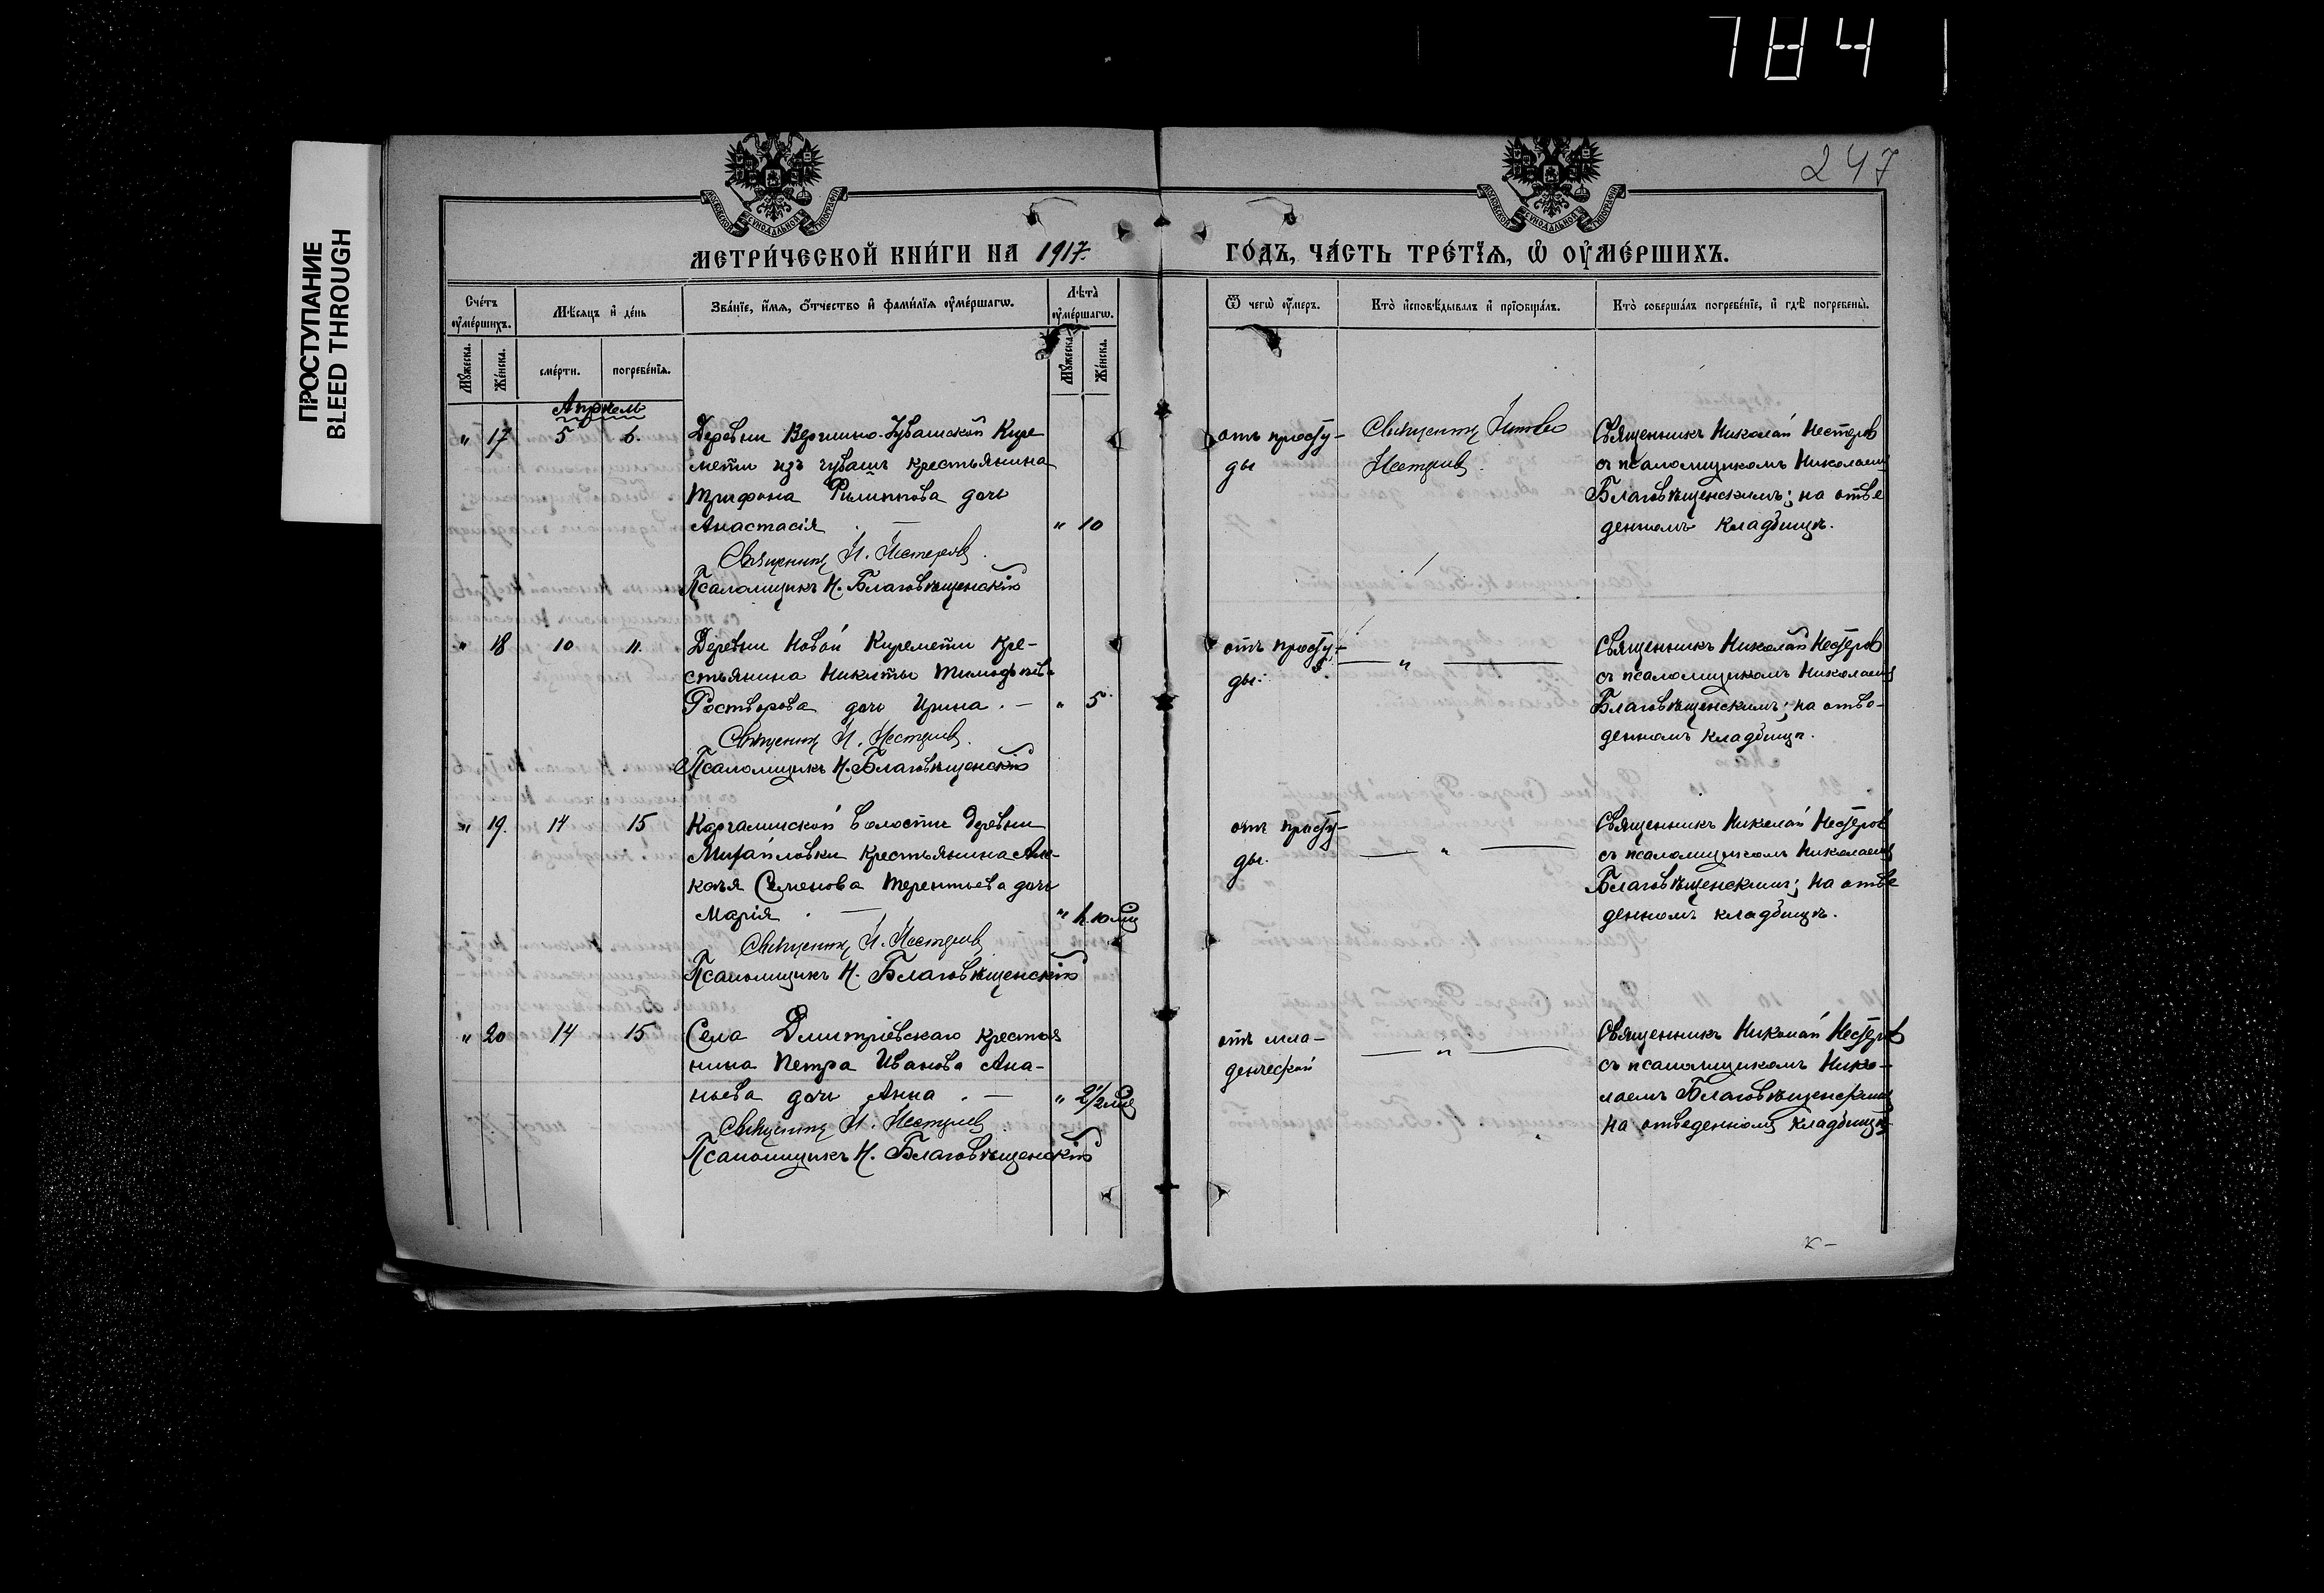 784
247
ПРОСТУПАНИЕ
BLEED THROUGH
МОСКОВСКОЙ СѴНОДАЛЬНОЙ ТИПОГРАФІИ
МОСКОВСКОЙ СѴНОДАЛЬНОЙ ТИПОГРАФІИ
МЕТРИ́ЧЕСКОЙ КНИ́ГИ НА 1917. ГО́ДЪ, ЧА́СТЬ ТРЕ́ТЇѦ, Ѡ҆ ОУ҆МЕ́РШИХЪ.
Сче́тъ оу҆ме́ршихъ.
Мѣ́сѧцъ и҆ де́нь
Зва́нїе, и҆́мѧ, ѻ҆́тчество и҆ фами́лїѧ оу҆ме́ршагѡ.
Лѣ́та оу҆ме́ршагѡ.
Ѿ чегѡ̀ оу҆́меръ.
Кто̀ и҆сповѣ́дывалъ и҆ прїѡбща́лъ.
Кто̀ соверша́лъ погребе́нїе, и҆ гдѣ̀ погребены̀.
Мꙋ́жеска.
Же́нска.
сме́рти.
погребе́нїѧ.
Мꙋ́жеска.
Же́нска.
Апрѣль
" 17 5 6. Деревни Вершино-Чувашской Кире
мети изъ чувашъ крестьянина
Трифона Филиппова дочь
Анастасія . — " 10
Священникъ Н. Нестеровъ.
Псаломщикъ Н. Благовѣщенскій
отъ просту-
ды
Священникъ
Нестеровъ.
Священникъ Николай Нестеровъ
съ псаломщикомъ Николаемъ
Благовѣщенскимъ; на отве
денномъ кладбищѣ.
" 18 10 11. Деревни Новой Киремети кре-
стьянина Никиты Тимофѣева
Растворова дочь Ирина . — " 5
Священникъ Н. Нестеровъ.
Псаломщикъ Н. Благовѣщенскій
отъ просту-
ды.
— " —
Священникъ Николай Нестеровъ
съ псаломщикомъ Николаемъ
Благовѣщенскимъ; на отве-
денномъ кладбищѣ.
" 19. 14 15 Каргалинской волости деревни
Михайловки крестьянина Але-
Семенова Терентьева дочь
Марія . — " 1. 10 мц
Священникъ Н. Нестеровъ
Псаломщикъ Н. Благовѣщенскій
отъ просту-
ды.
— " —
Священникъ Николай Нестеровъ
съ псаломщикомъ Николаемъ
Благовѣщенскимъ; на отве
денномъ кладбищѣ.
" 20 14 15 Села Дмитріевскаго крестья
нина Петра Иванова Ана-
ньева дочь Анна . — " 2 1/2 мц
Священникъ Н. Нестеровъ
Псаломщикъ Н. Благовѣщенскій
отъ мла-
денческой
— " —
Священникъ Николай Нестеровъ
съ псаломщикомъ Нико-
лаемъ Благовѣщенскимъ
на отведенномъ кладбищѣ